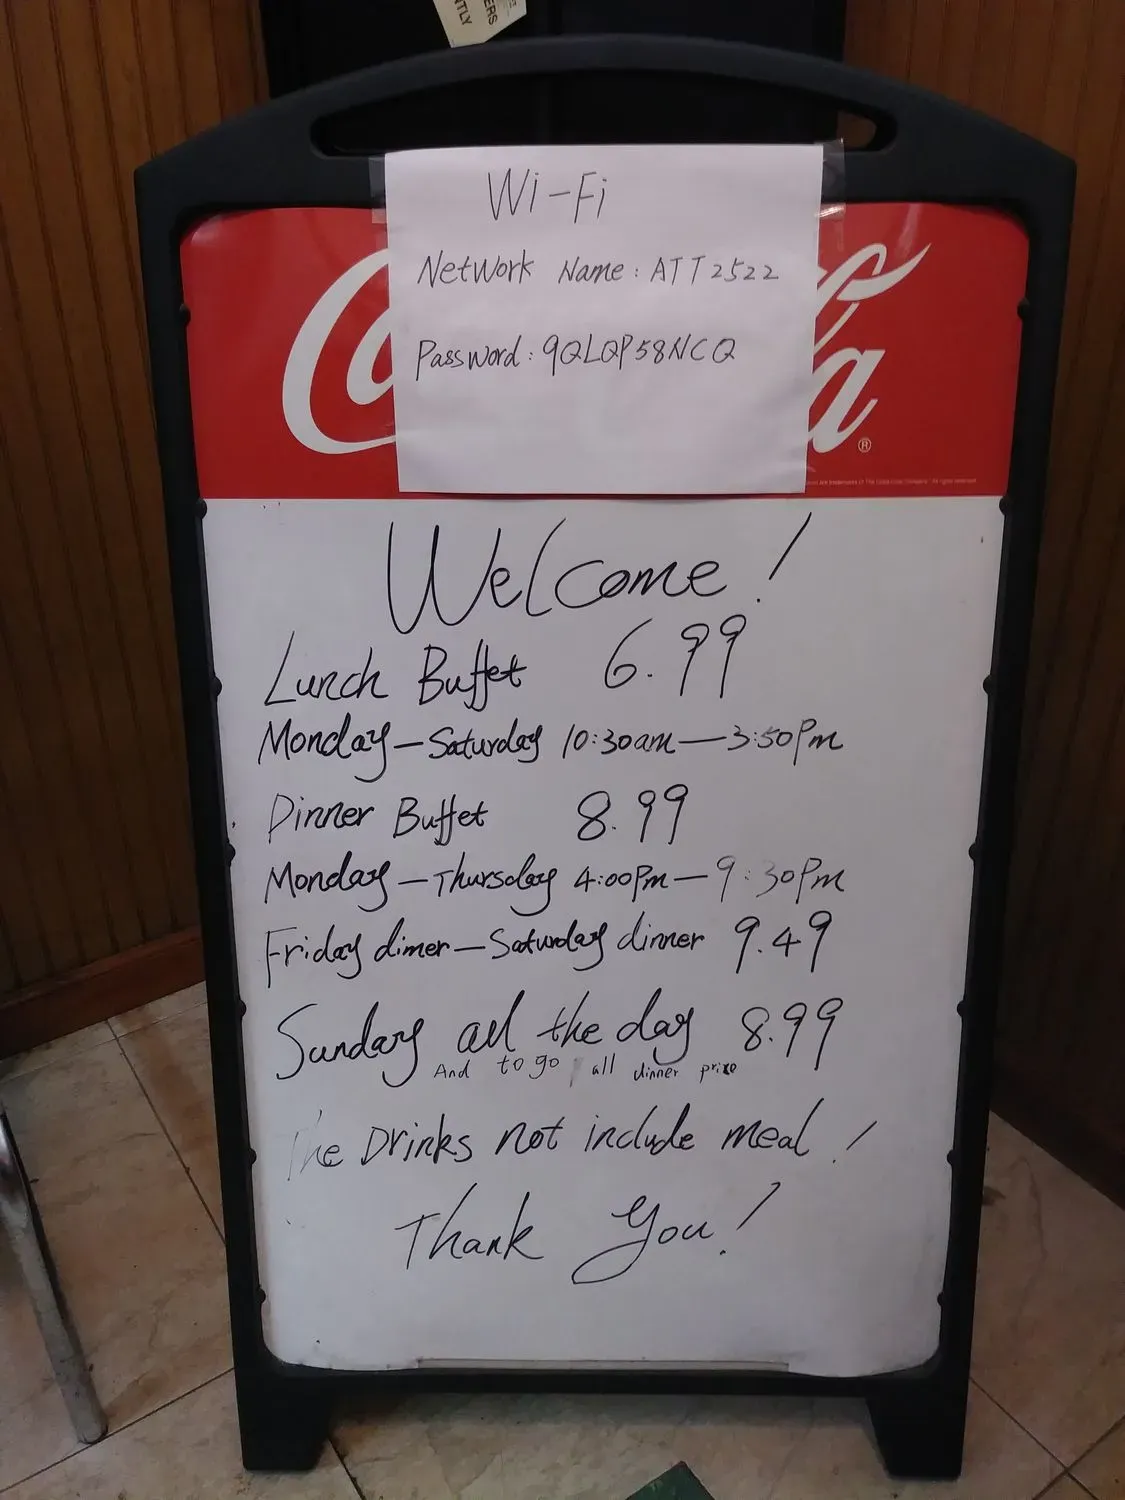 NTLY
ERS
Wi-Fi
Network Name: ATT2522
Password: 9QLQP58NCQ
Welcome!
Lunch Buffet 6.99
Monday - Saturday 10:30am - 3:50Pm
Dinner Buffet 8.99
Monday - Thursday 4:00Pm - 9:30Pm
Friday dinner - Saturday dinner 9.49
Sunday all the day 8.99
And to go all dinner price
The Drinks not include meal!
Thank You!